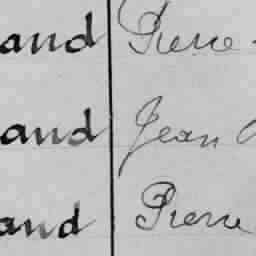 and Pierre
and Jean
and Pierre